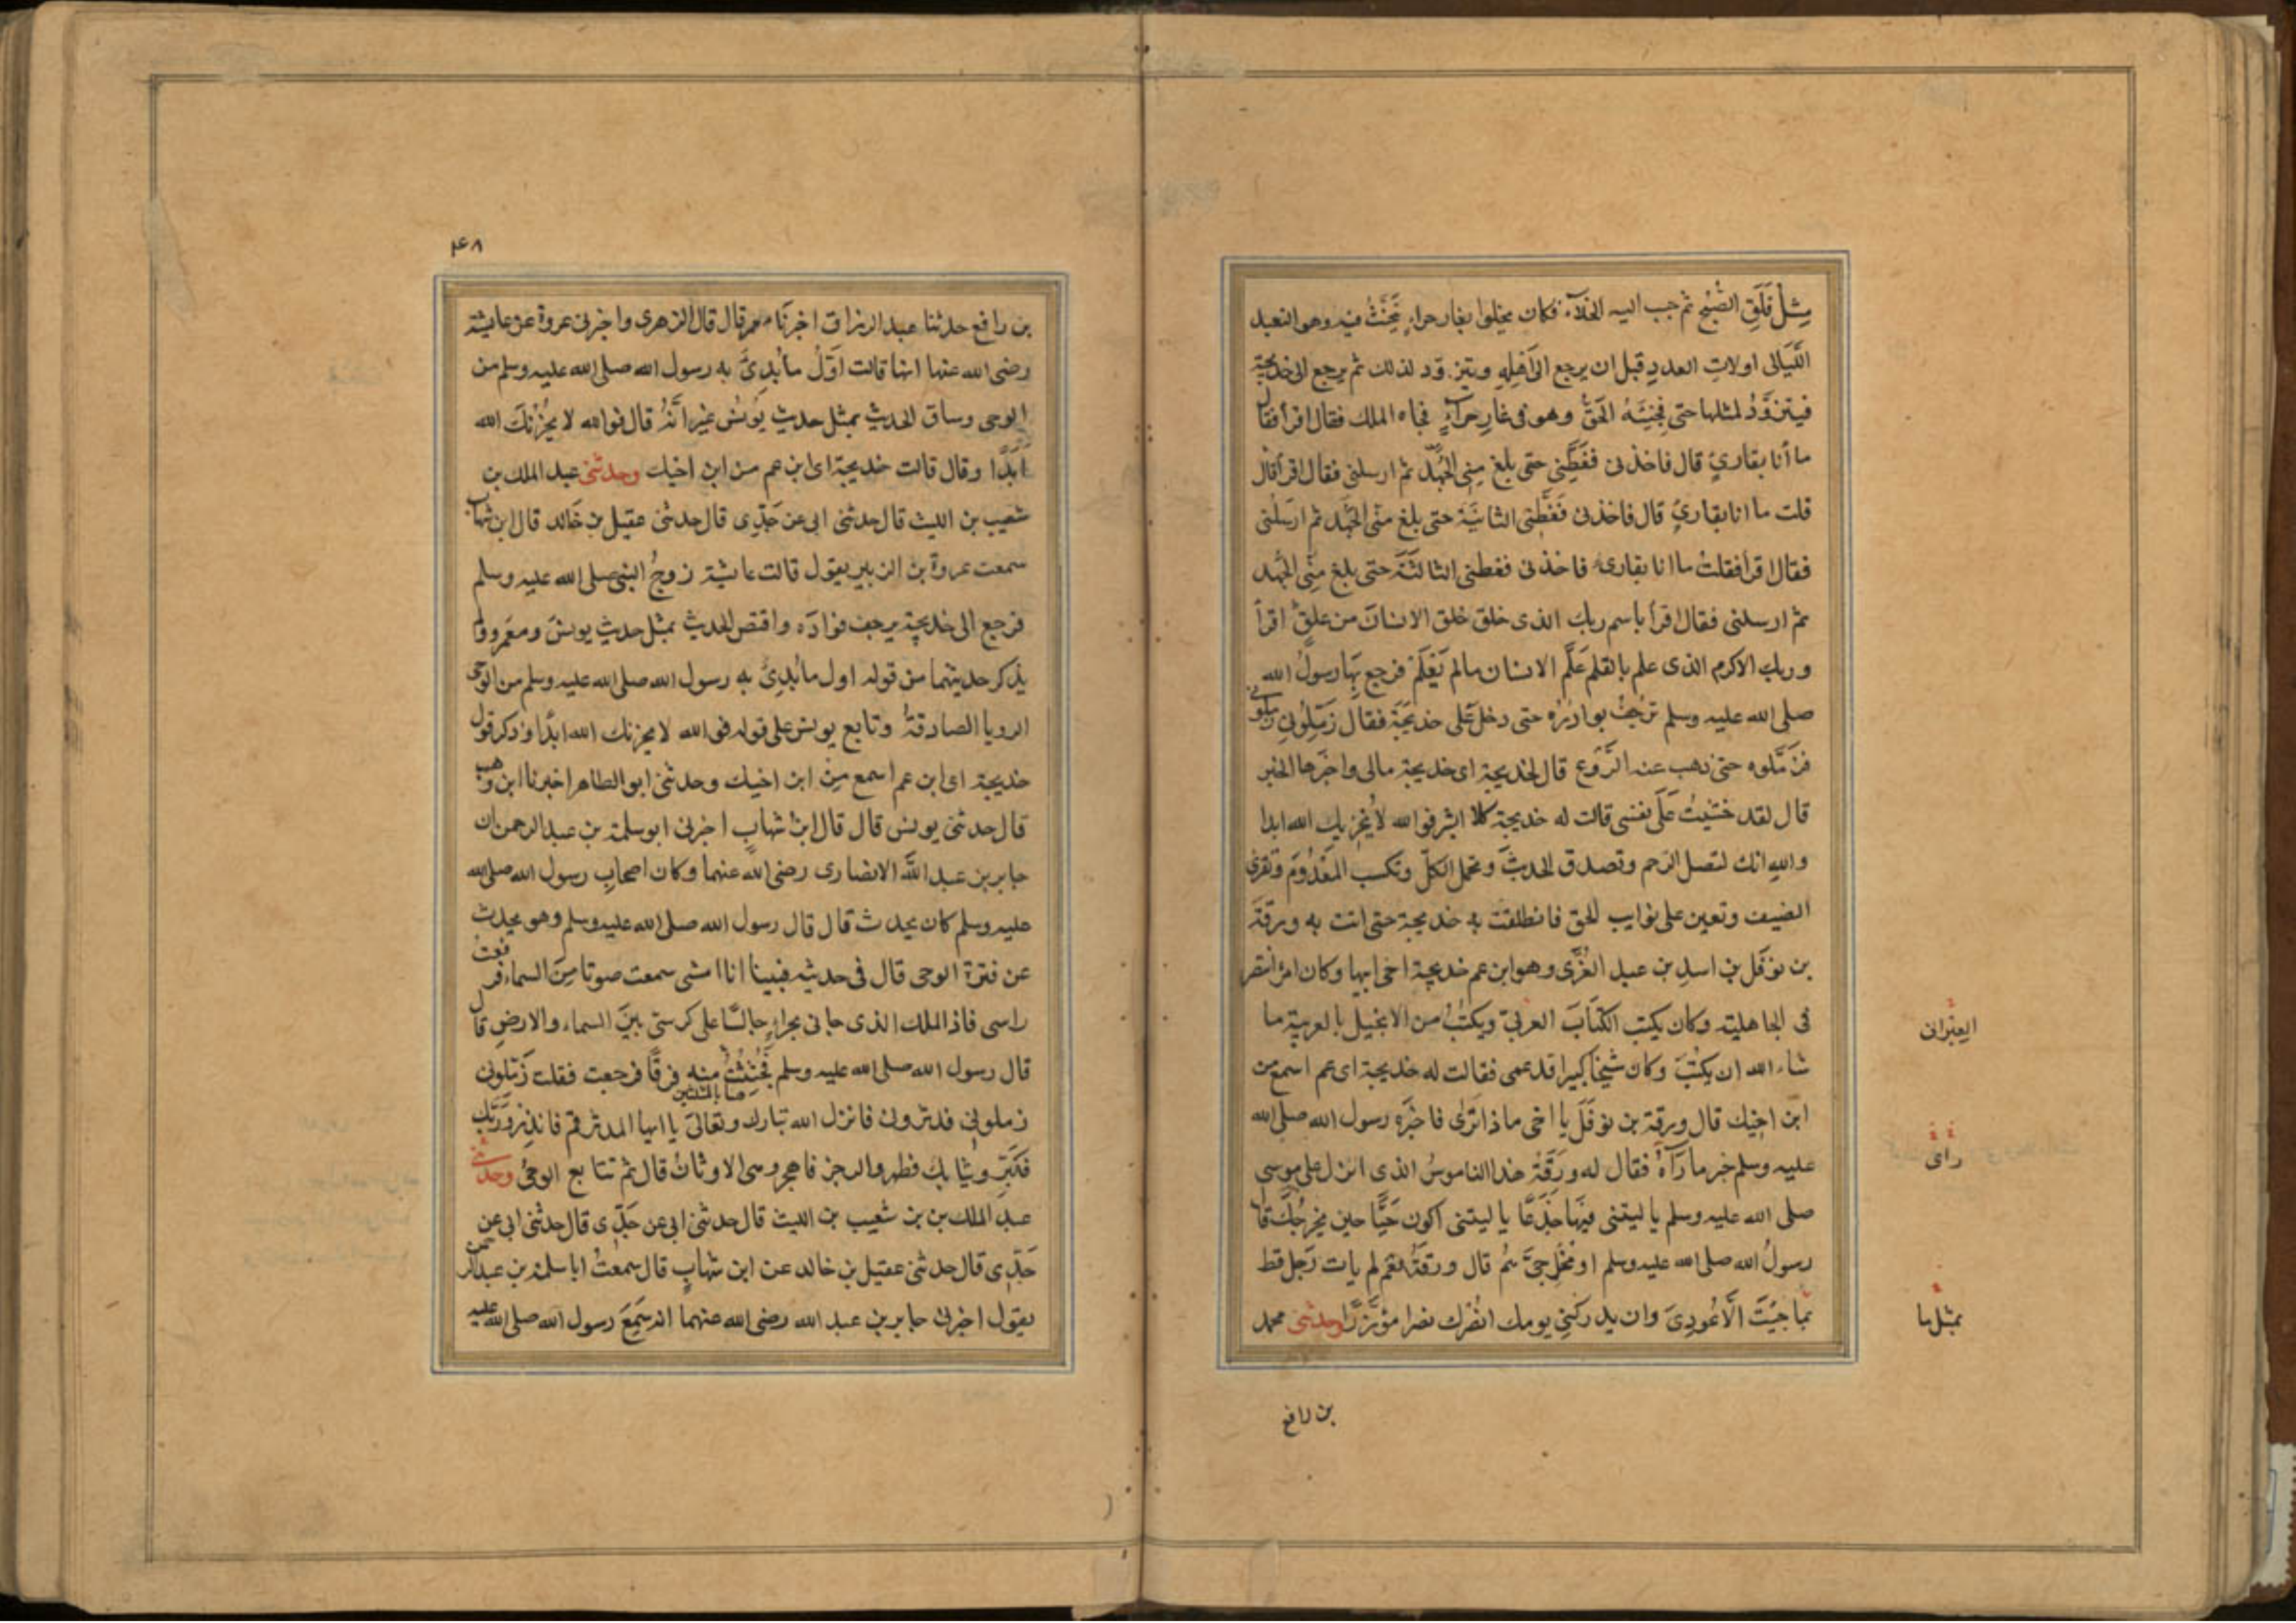 مِثْلَ فَلَقِ الصُّبْحِ ثم حبب اليه الخلآء فكان يخلوا بغار حراءٍ يَتَحَنَّثُ فيه وهو التعبد
اللَّيَالى اولاتِ العددِ قبل ان يرجع الى اَهْلِهِ ويتزوَّد لذلك ثم يرجع الى خديجة
فيتزوَّدُ لمثلها حتى فَجِئَهُ الحَقُّ وهو فى غارِ حِراءٍ فجاه الملك فقال اقرأ فقال
ما أنا بقارئٍ قال فاخذنى فَغَطَّنِى حتى بلغ مِنِى الجَهْدَ ثم ارسلنى فقال اقرأ قال
قلت ما انا بقارئٍ قال فاخذنى فَغَطَّنِى الثانيَةَ حتى بلغ منّى الجَهْد ثم ارسَلنى
فقال اقرأ فقلتُ ما انا بقارئٍ فاخذنى فغطنى الثالثَةَ حتى بلغ مِنّى الجَهد
ثم ارسلنى فقال اقرأ باسم ربك الذى خلق خلق الانسانَ من علقٍ اقرأ
وربك الاكرم الذى علم بالقلم عَلَّم الانسان مالم يَعْلَمْ فرجع بِهَا رسولُ الله
صلى الله عليه وسلم تَرجُفُ بوادِرُه حتى دخل عَلَى خديجَةَ فقال زَمِّلُونِى زملونى
فزَمَّلوه حتى ذهب عنه الرَّوْع قال لخديجة اى خديجة مالى واخبرها الخبر
قال لقد خشيتُ عَلَى نفسى قالت له خديجة كلا ابشر فوالله لا يُخزيك الله ابدا
والله انك لتصل الرحم وتصدق الحديثَ وتحمل الكلّ وتكسب المَعْدُومَ وتقرى
الضيف وتعين على نوايب الحق فانطلقت به خديجة حتى اتت به ورقةَ
بن نوفَل بن اسدِ بن عبد العُزَّى وهو ابن عم خديجة اخى ابيها وكان امرأ تنصر
فى الجاهليته وكان يكتب الكتَابَ العربىّ ويكتُبُ من الانجيل بالعربية ما
العِبْرانى
شاء الله ان يكتُبَ وكان شيخا كبيرا قد عمى فقالت له خديجة اى عم اسمع من
ابن اخِيك قال ورقة بن نوفَلَ يا اخى ماذا تَرَى فاخبَرَه رسول الله صلى الله
عليه وسلم خبر ما رَآهُ فقال له ورَقَةُ هذا الناموسُ الذى انزل على موسى
راى
صلى الله عليه وسلم يا ليتنى فيها جَذَعًا يا ليتنى اكون حَيًّا حين يخرجُكَ قال
رسولُ الله صلى الله عليه وسلم اومُخْرِجِىَّ هُم قال ورقَةُ نعم لم يات رَجل قط
بما جئتَ الّا عُودِىَ وان يدركنى يومك انْصُرك نصرا مؤزَّرًا وحدثنى محمد
بمثل ما
بن رافع
۴۸
بن رافع حدثنا عبد الرزاق اخبرنَا معمر قال قال الزهرى واخبرنى عروة عن عايشة
رضى الله عنها انها قالت اَوَّلُ ما بُدِئَ به رسول الله صلى الله عليه وسلم من
الوحى وساق الحديث بمثل حديث يُونُسَ غير اَنَّهُ قال فوالله لا يُحْزِنُكَ الله
اَبَدًا وقال قالت خديجة اى ابن عم من ابن اخيك وحدثنى عبد الملك بن
شعيب بن الليث قال حدثنى ابى عن جَدِّى قال حدثنى عقيل بن خَالد قال ابن شهاب
سمعت عروة بن الزبير يقول قالت عايشة زوجُ النبى صلى الله عليه وسلم
فرجع الى خديجة يرجف فوادَه واقتص الحديث بمثل حديث يونس ومعمر ولم
يذكر حديثهما من قوله اول ما بُدِئَ به رسول الله صلى الله عليه وسلم من الوحى
الرويا الصادقةُ وتابع يونس على قوله فوالله لا يحزنك الله ابدًا وذكر قول
خديجة اى ابن عم اسمع مِنْ ابن اخيك وحدثنى ابو الطاهر اخبرنا ابن وهب
قال حدثنى يونس قال قال ابن شهابٍ اخبرنى ابو سلمة بن عبد الرحمن ان
جابر بن عبد اللَّه الانصارى رضى الله عنهما وكان اصحابِ رسول الله صلى الله
عليه وسلم كان يحدث قال قال رسول الله صلى الله عليه وسلم وهو يحدث
عن فترة الوحى قال فى حديثه فبينا انا امشى سمعت صوتا مِنَ السماء فرفعتُ
راسى فاذ الملك الذى جانى بحراءٍ جالسًا على كرسىّ بينَ السماء والارضِ قال
قال رسول الله صلى الله عليه وسلم فَجُثِثْتُ منه فرقًا فرجعت فقلت زَمِّلونى
زملونِى فدثرونى فانزل الله تبارك وتعالى يا ايها المدثر قم فانذِر وَرَبَّك
فَكَبِّر وثيابك فطهر والرجز فاهجر وهى الاوثانُ قال ثم تتابع الوحىُ وحدثنى
عبد الملك بن بن شعيب بن الليث قال حدثنى ابى عن جَدِّى قال حدثنى ابى عن
جَدِّى قال حدثنى عقيل بن خالد عن ابن شهابٍ قال سمعتُ ابا سلمة بن عبد الرحمن
يقول اخبرنى جابر بن عبد الله رضى الله عنهما انه سَمِعَ رسول الله صلى الله عليه